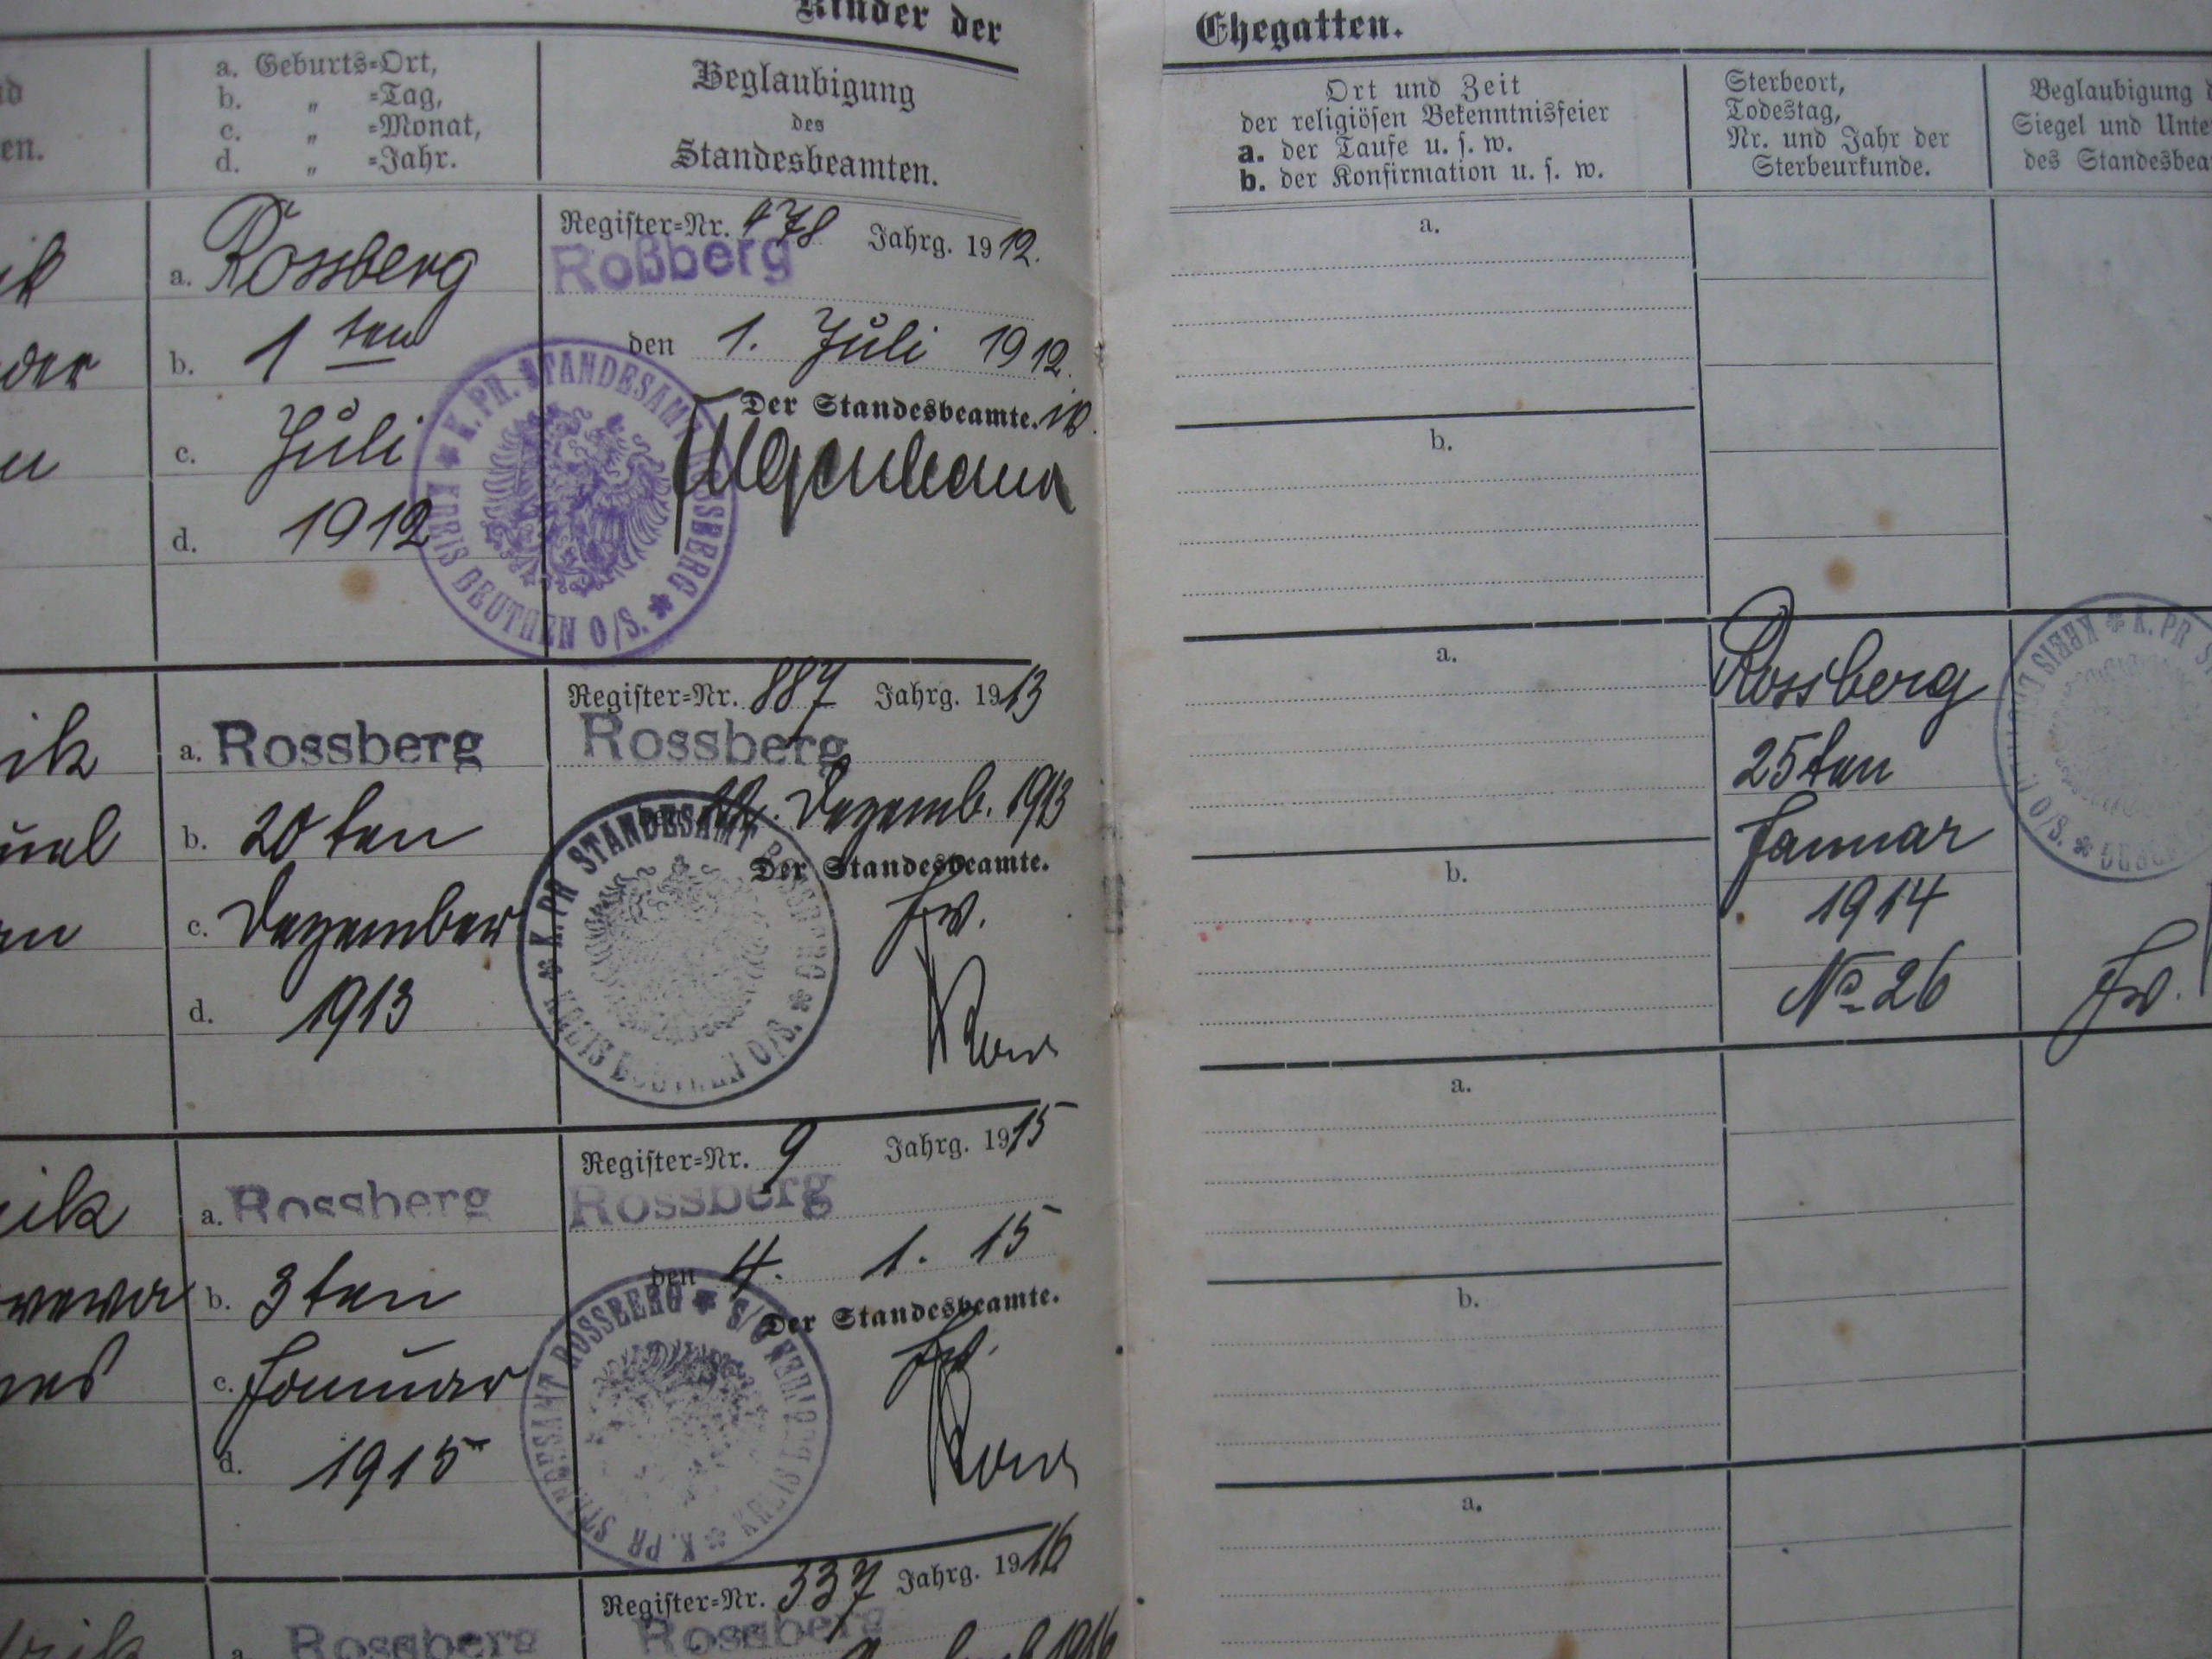 Kinder der
a. Geburts=Ort,
b. „ =Tag,
c. „ =Monat,
d. „ =Jahr.
Beglaubigung
des
Standesbeamten.
en.
ik
der
a. Rossberg
b. 1 ten
c. Juli
d. 1912
Register=Nr. 478 Jahrg. 1912.
Roßberg
den 1. Juli 1912.
Der Standesbeamte.
K. PR. STANDESAMT ROSSBERG * KREIS BEUTHEN O/S. *
ik
a. Rossberg
b. 20 ten
c. Dezember
d. 1913
Register=Nr. 887 Jahrg. 1913
Rossberg
Dezemb. 1913
Der Standesbeamte.
K. PR STANDESAMT ROSSBERG * KREIS BEUTHEN O/S. *
ik
a. Rossberg
b. 3 ten
c. Januar
d. 1915
Register=Nr. 9 Jahrg. 1915
Rossberg
den 4. 1. 15
Der Standesbeamte.
K. PR STANDESAMT ROSSBERG * KREIS BEUTHEN O/S *
rik
a. Rossberg
Register=Nr. 337 Jahrg. 1916
Rossberg
1916
Ehegatten.
Ort und Zeit
der religiösen Bekenntnisfeier
a. der Taufe u. s. w.
b. der Konfirmation u. s. w.
Sterbeort,
Todestag,
Nr. und Jahr der
Sterbeurkunde.
Beglaubigung d
Siegel und Unte
des Standesbea
a.
b.
a.
b.
Rossberg
25 ten
Januar
1914
No 26
K. PR S
KREIS BEUTHEN O/S. *
a.
b.
a.